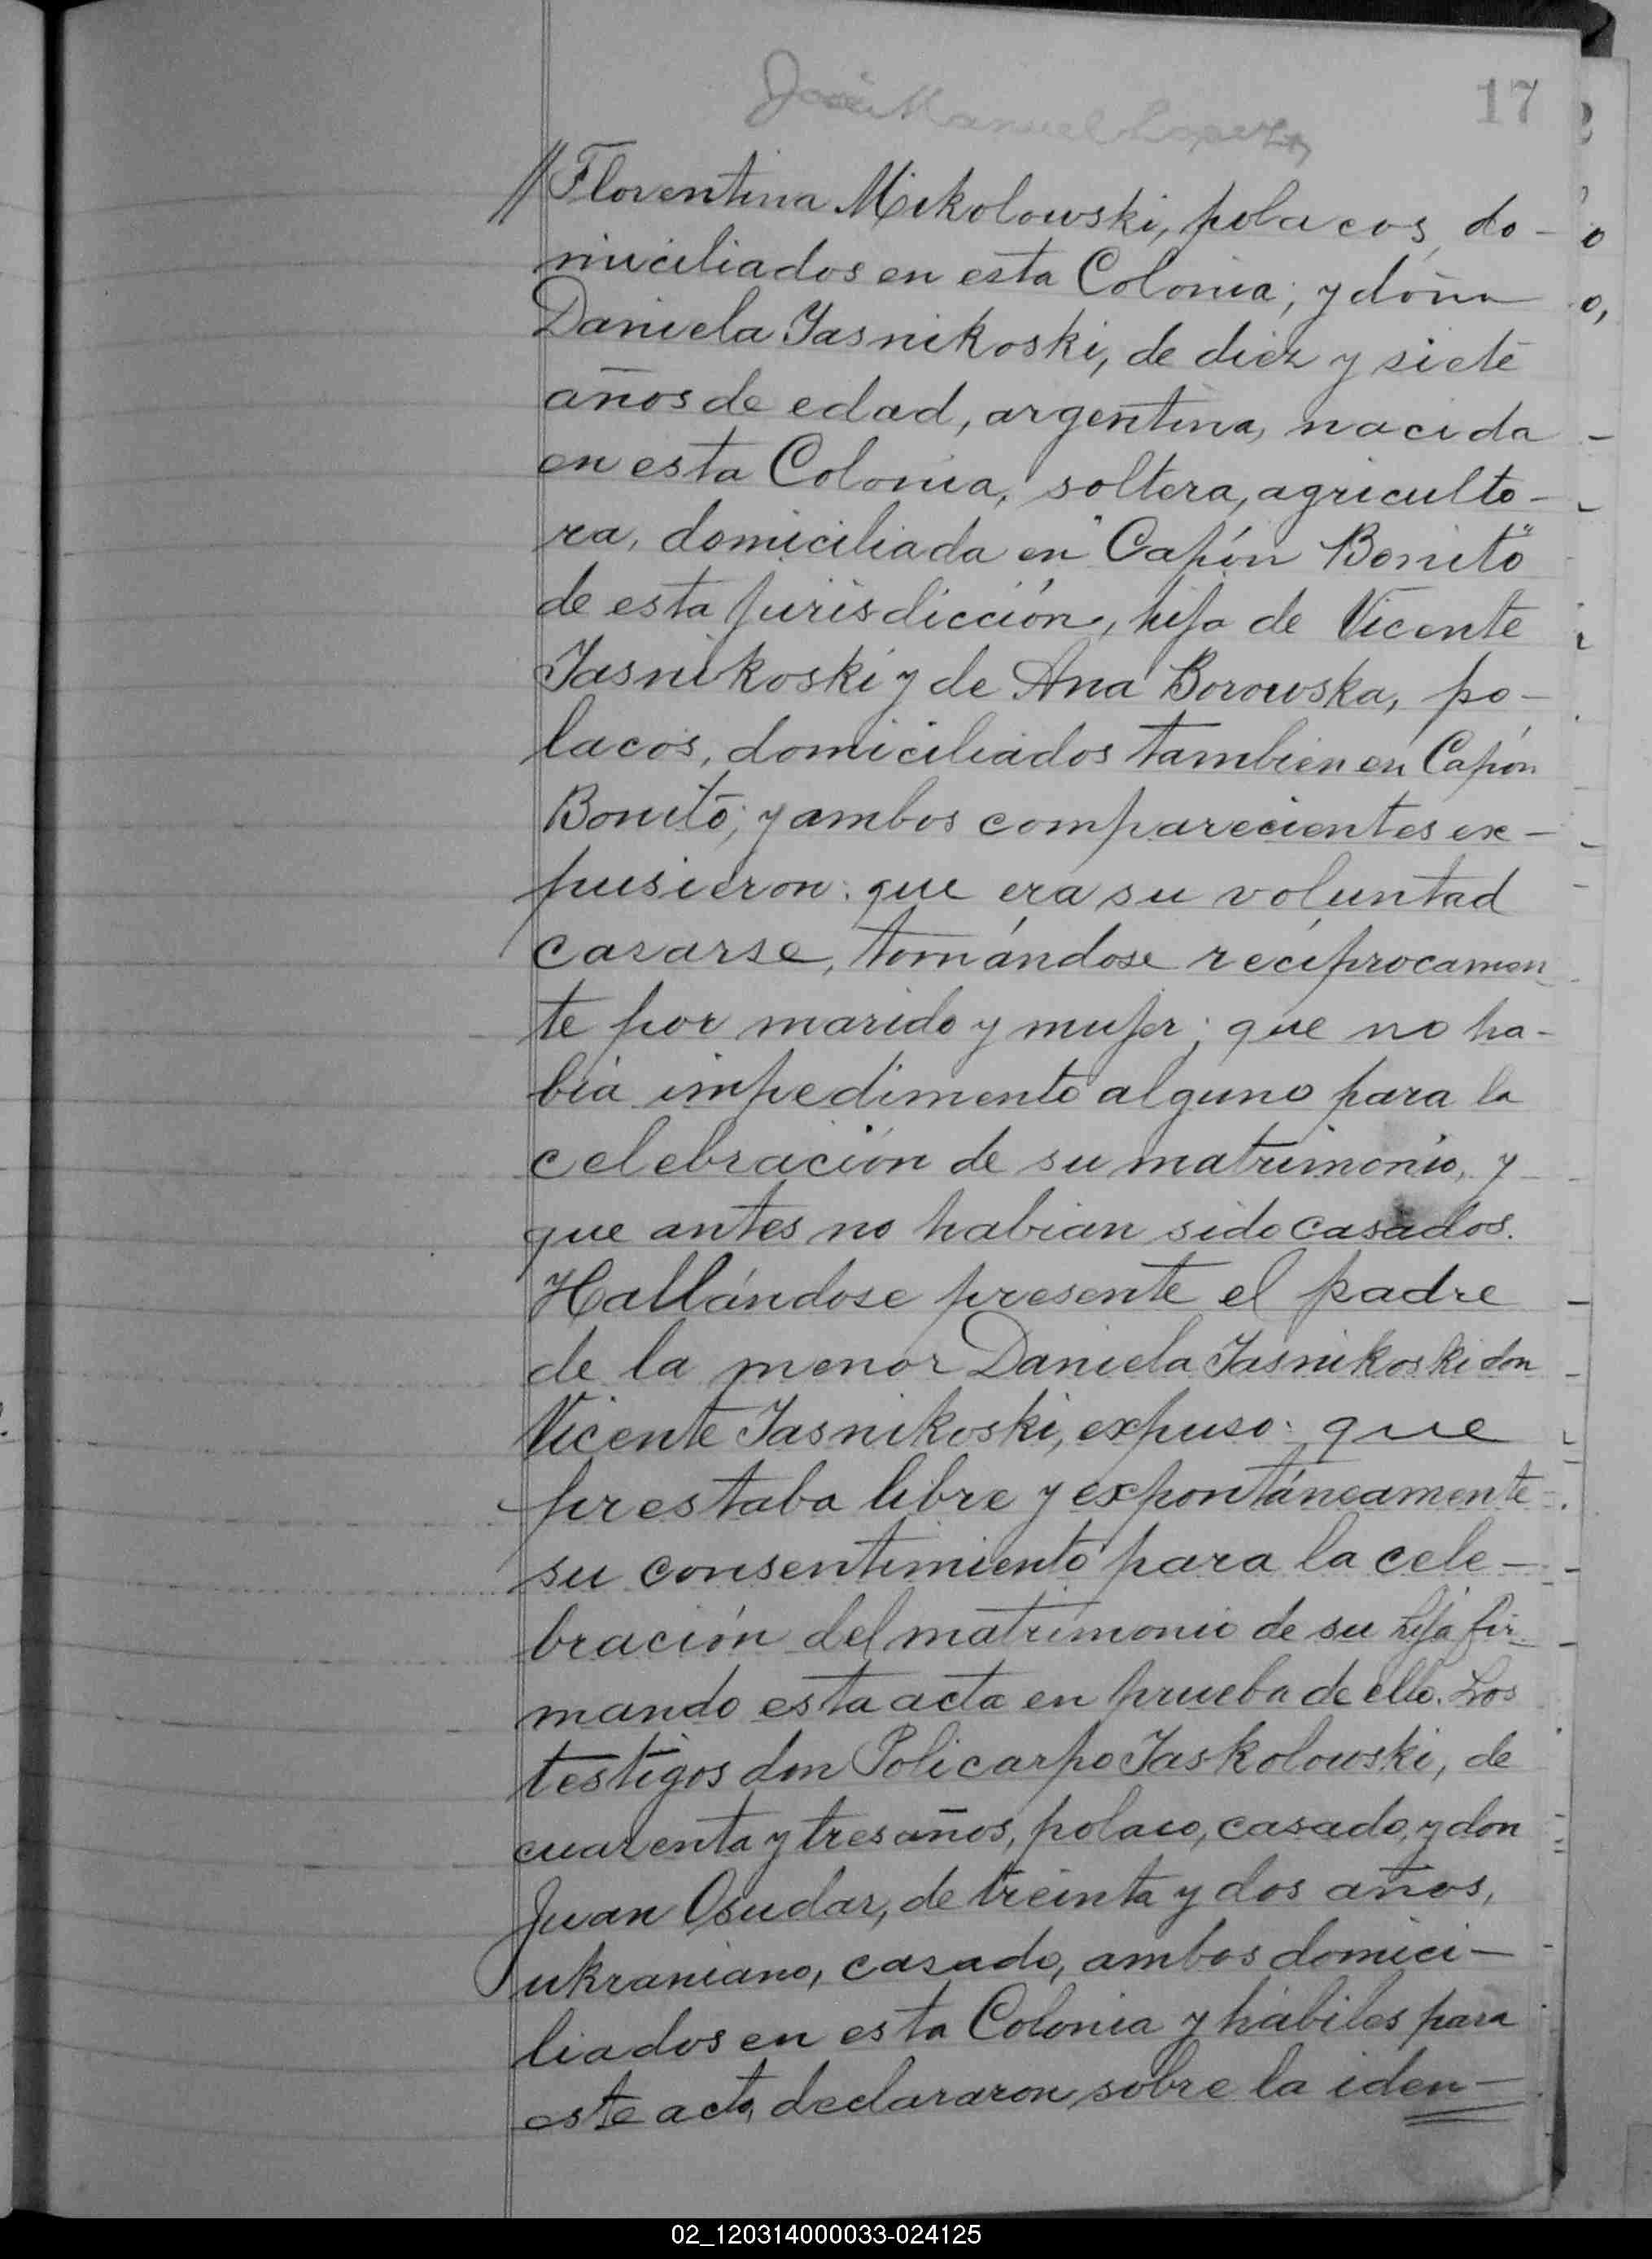 17
José Manuel Lopez
// Florentina Mikolowski, polacos, do-
miciliados en esta Colonia; y doña
Daniela Jasnikoski, de diez y siete
años de edad, argentina, nacida
en esta Colonia, soltera, agriculto-
ra, domiciliada en "Capón Bonito"
de esta jurisdicción, hija de Vicente
Jasnikoski y de Ana Borowska, po-
lacos, domiciliados tambien en Capón
Bonito; y ambos comparecientes ex-
pusieron: que era su voluntad
casarse, tomándose recíprocamen
te por marido y mujer; que no ha-
bía impedimento alguno para la
celebración de su matrimonio, y
que antes no habian sido casados.
Hallándose presente el padre
de la menor Daniela Jasnikoski don
Vicente Jasnikoski, expuso: que
prestaba libre y expontáneamente
su consentimiento para la cele-
bración del matrimonio de su hija fir-
mando esta acta en prueba de ello. Los
testigos don Policarpo Jaskolowski, de
cuarenta y tres años, polaco, casado, y don
Juan Osudar, de treinta y dos años,
ukraniano, casado, ambos domici-
liados en esta Colonia y hábiles para
este acto, declararon sobre la iden-
02_120314000033-024125